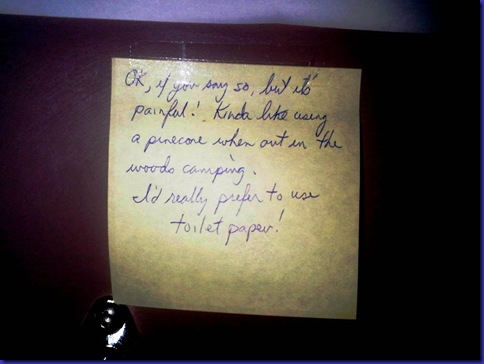 OK, if you say so, but it's
painful! Kinda like using
a pinecone when out in the
woods camping.
I'd really prefer to use
toilet paper!